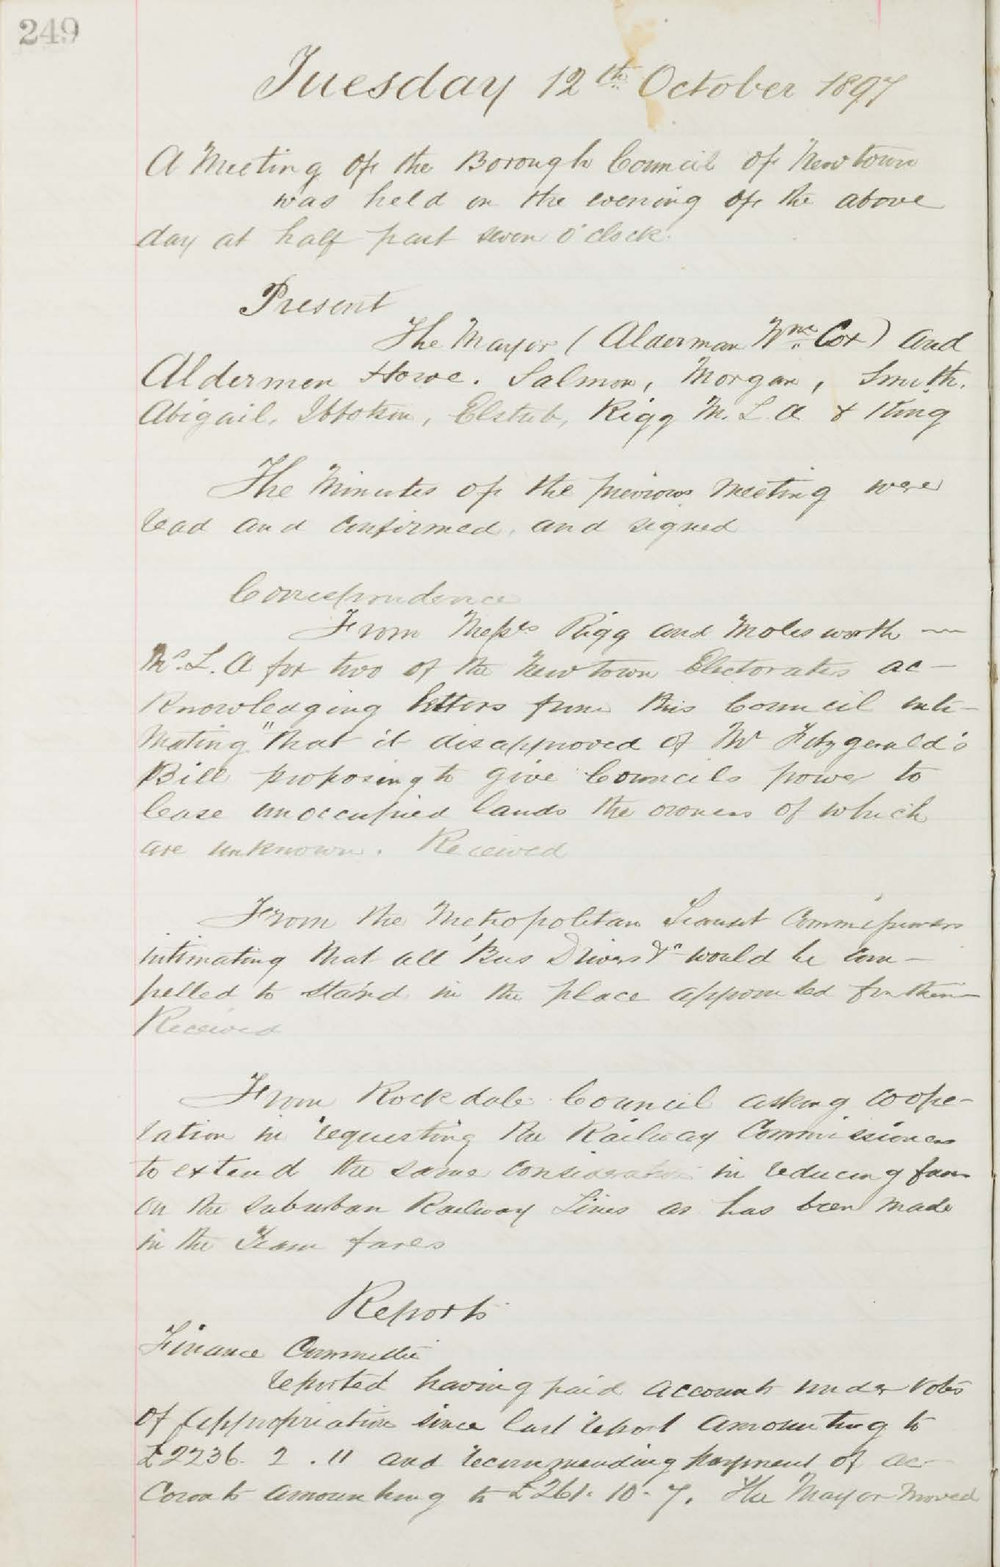 249
Tuesday 12th October 1897
A Meeting of the Borough Council of Newtown
was held on the evening of the above
day at half past seven o'clock.
Present
The Mayor (Alderman Wm Cox) and
Aldermen Howe. Salmon, Morgan, Smith.
Abigail, Ibbotson, Elstub, Rigg M.L.A & King
The Minutes of the previous meeting were
read and confirmed, and signed
Correspondence
From Messrs Rigg and Molesworth —
Ms.L.A for two of the Newtown Electorates ac-
knowledging letters from this Council inti-
mating "that it disapproved of Mr Fitzgerald's
Bill proposing to give Councils power to
lease unoccupied lands the owners of which
are unknown. Received
From the Metropolitan Transit Commissioners
intimating that all 'Bus Drivers &c would be com-
pelled to stand in the place appointed for them—
Received
From Rockdale Council asking coope-
ration in requesting the Railway Commissioners
to extend the same consideration in reducing fares
on the suburban Railway Lines as has been made
in the Tram fares
Reports
Finance Committee
reported having paid accounts under Votes
of Appropriation since last report amounting to
£2236. 2. 11 and recommending payment of ac-
counts amounting to £261. 10. 7. The Mayor moved